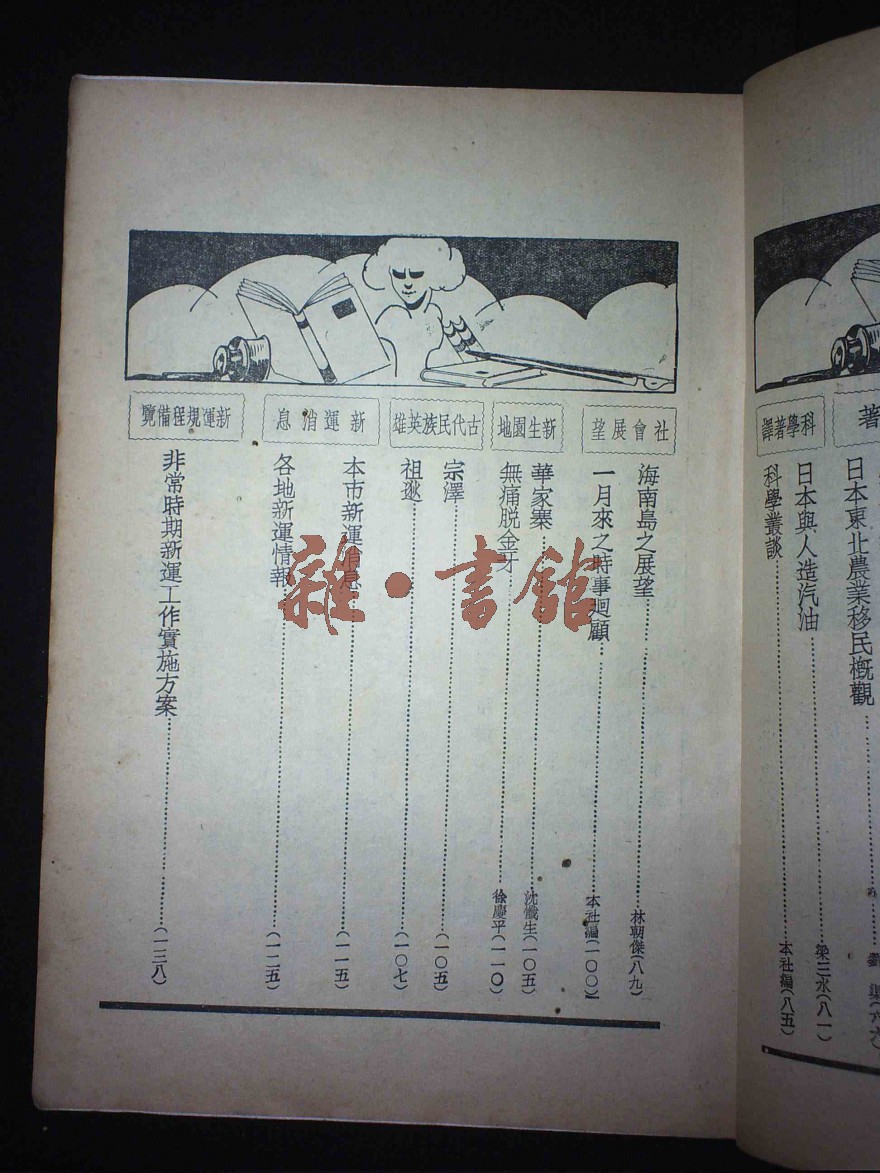 著
日本東北農業移民概觀
日本與人造汽油……梁三永(八一)
科學著譯
科學叢談……本社編(八五)
社會展望
海南島之展望……林朝傑(八九)
一月來之時事廻顧……本社編(一〇〇)
新生園地
華家寨……沈懺生(一〇五)
無痛脫金牙……徐慶平(一一〇)
古代民族英雄
宗澤……(一〇五)
祖逖……(一〇七)
新運消息
本市新運消息……(一一五)
各地新運情報……(一二五)
新運規程備覽
非常時期新運工作實施方案……(一三八)
雜·書館